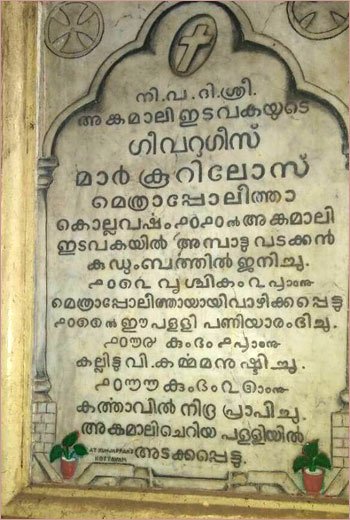 നി.വ.ദി.ശ്രീ.
അങ്കമാലി ഇടവകയുടെ
ഗീവറുഗീസ്
മാർ കൂറിലോസ്
മെത്രാപ്പോലീത്താ
കൊല്ലവർഷം അങ്കമാലി
ഇടവകയിൽ അമ്പാട്ടു വടക്കൻ
കുടുംബത്തിൽ ജനിച്ചു.
വൃശ്ചികം
മെത്രാപ്പോലീത്തായായിവാഴിക്കപ്പെട്ടു
ഈ പള്ളി പണിയാരംഭിച്ചു.
കുംഭം
കല്ലിട്ടു വി. കർമ്മമനുഷ്ഠിച്ചു.
കുംഭം
കർത്താവിൽ നിദ്ര പ്രാപിച്ചു.
അങ്കമാലിചെറിയ പള്ളിയിൽ
അടക്കപ്പെട്ടു.
KOTTAYAM